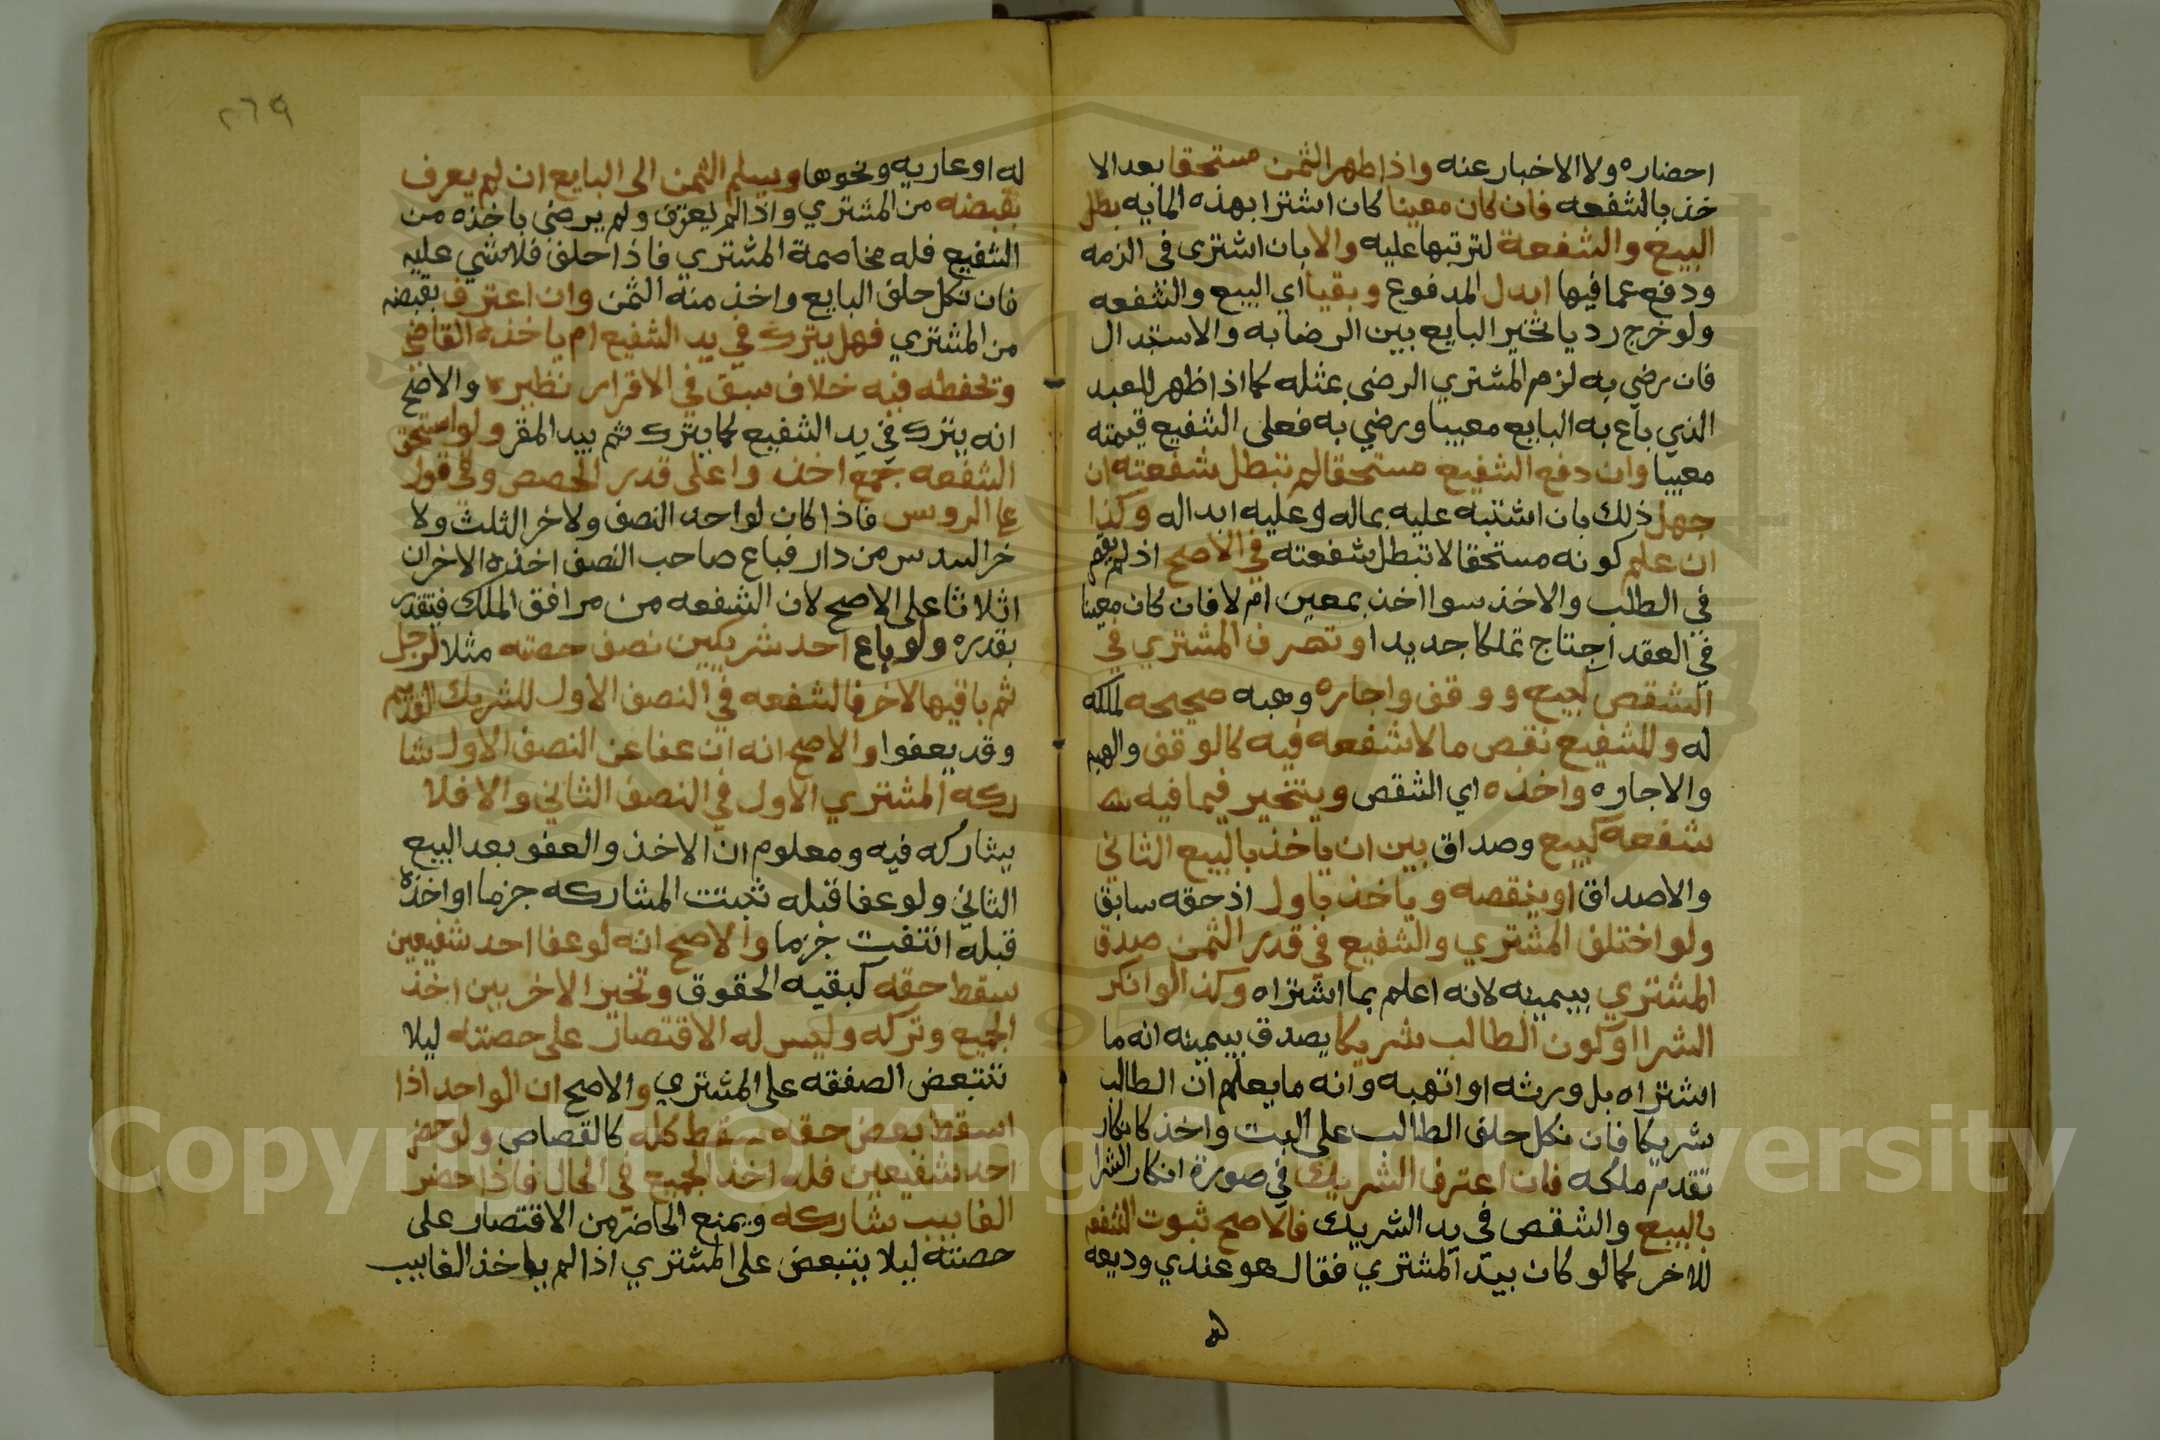 احضاره ولا الاخبار عنه واذا ظهر الثمن مستحقا بعد الا
خذ بالشفعه فان كان معينا كان اشترا بهذه المايه بطل
البيع والشفعة لترتبها عليه والا بان اشترى فى الذمه
ودفع عما فيها ابدل المدفوع وبقيا اي البيع والشفعه
ولو خرج رديا تخير البايع بين الرضا به والاستبدال
فان رضي به لزم المشتري الرضى بمثله كما اذا ظهر للعبد
الذي باع به البايع معيبا ورضي به فعلى الشفيع قيمته
معيبا وان دفع الشفيع مستحقا لم تبطل شفعته ان
جهل ذلك بان اشتبه عليه بماله وعليه ابداله وكذا
ان علم كونه مستحقا لا تبطل شفعته في الاصح اذ لم يقصر
في الطلب والاخذ سوا اخذ بمعين ام لا فان كان معينا
في العقد احتاج تملكا جديدا وتصرف المشتري في
الشقص كبيع ووقف واجاره وهبه صحيحه لملكه
له وللشفيع نقص ما لا شفعه فيه كالوقف والهبه
والاجاره واخذه اي الشقص ويتخير فيما فيه شـ
شفعه كبيع وصداق بين ان ياخذ بالبيع الثاني
والاصداق او ينقصه وياخذ باول اذ حقه سابق
ولو اختلف المشتري والشفيع في قدر الثمن صدق
المشتري بيمينه لانه اعلم بما اشتراه وكذا لو انكر
الشرا او كون الطالب شريكا يصدق بيمينه انه ما
اشتراه بل ورثه او اتهبه وانه ما يعلم ان الطالب
شريكا فان نكل حلف الطالب على البت واخذ كانكار
تقدم ملكه فان اعترف الشريك في صورة انكار الشرا
بالبيع والشقص فى يد الشريك فالاصح ثبوت الشفعه
للاخر كما لو كان بيد المشتري فقال هو عندي وديعه
له
٢٦٩
له او عاريه ونحوها ويسلم الثمن الى البايع ان لم يعرف
بقبضه من المشتري واذا لم يعترف ولم يرضى باخذه من
الشفيع فله مخاصمة المشتري فاذا حلف فلا شي عليه
فان نكل حلف البايع واخذ منه الثمن وان اعترف بقبضه
من المشتري فهل يترك في يد الشفيع ام ياخذه القاضي
وتحفظه فيه خلاف سبق في الاقرار نظيره والاصح
انه يترك في يد الشفيع كما يترك ثم بيد المقر ولو استحق
الشفعه جمع اخذوا على قدر الحصص وفي قول
على الروس فاذا كان لواحد النصف ولاخر الثلث ولا
خر السدس من دار فباع صاحب النصف اخذه الاخران
اثلاثا على الاصح لان الشفعه من مرافق الملك فتقدر
بقدره ولو باع احد شريكين نصف حصته مثلا لرجل
ثم باقيها لاخر فالشفعه في النصف الاول للشريك القديم
وقد يعفوا والاصح انه ان عفا عن النصف الاول شا
ركه المشتري الاول في النصف الثاني والا فلا
يشاركه فيه ومعلوم ان الاخذ والعفو بعد البيع
الثاني ولو عفا قبله ثبتت المشاركه جزما او اخذه
قبله انتفت جزما والاصح انه لو عفا احد شفيعين
سقط حقه كبقيه الحقوق وتخير الاخر بين اخذ
الجميع وتركه وليس له الاقتصار على حصته ليلا
تتبعض الصفقه على المشتري والاصح ان الواحد اذا
اسقط بعض حقه سقط كله كالقصاص ولو حضر
احد شفيعين فله اخذ الجميع في الحال فاذا حضر
الغايب شاركه ويمنع الحاضر من الاقتصار على
حصته ليلا يتبعض على المشتري اذا لم ياخذ الغايب
Copyright © King Saud University